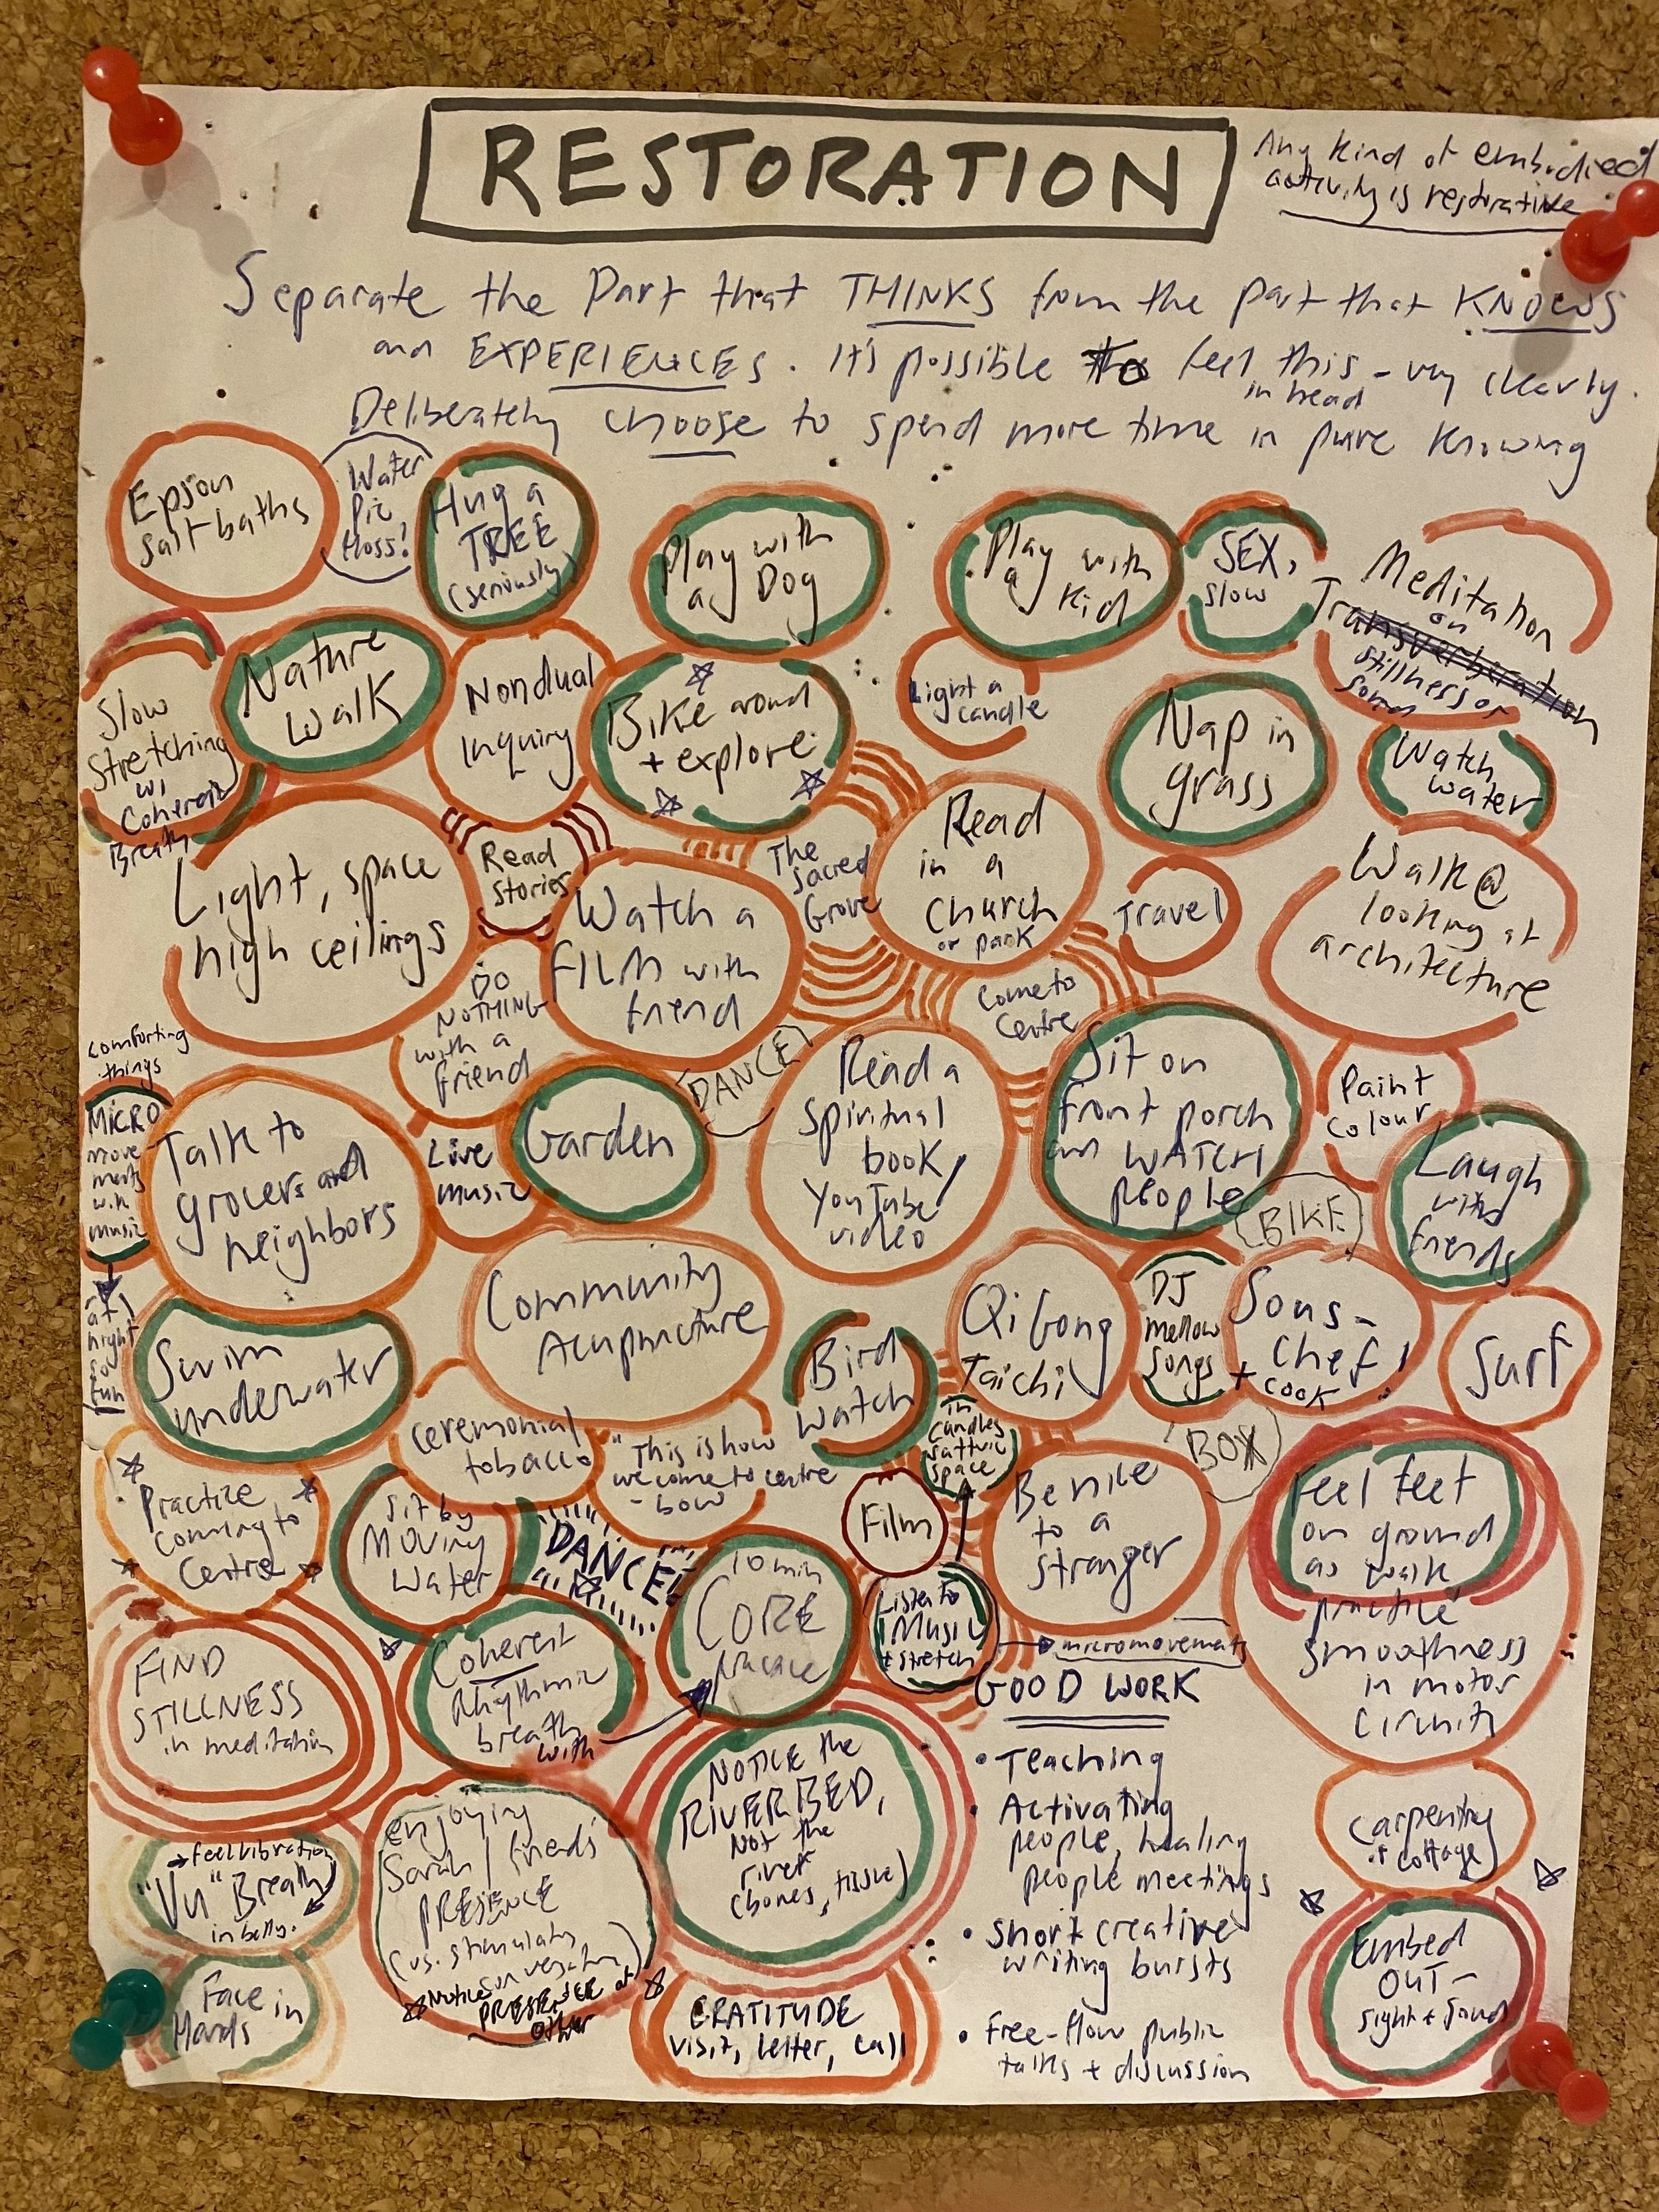 RESTORATION
Any kind of embodied
activity is restorative
Separate the Part that THINKS from the part that KNOWS
and EXPERIENCES. It's possible to feel this - very clearly.
in head
Deliberately choose to spend more time in pure knowing
Epson
salt baths
Water
Pic
floss!
Hug a
TREE
(seriously)
Play with
a Dog
Play with
a Kid
SEX,
slow
Meditation
on
stillness or
sound
Slow
Stretching
w/
Coherent
Breath
Nature
Walk
Nondual
Inquiry
Bike around
+ explore
Light a
candle
Nap in
grass
Watch
water
Light, space
high ceilings
Read
Stories
Watch a
FILM with
friend
The
Sacred
Grove
Read
in a
Church
or park
Travel
Walk @
looking at
architecture
DO
NOTHING
with a
friend
Come to
Centre
comforting
things
MICRO
move-
ments
w.
music
at
night
so
fun
Talk to
grocers and
neighbors
Live
music
Garden
DANCE!
Read a
Spiritual
book/
YouTube
video
Sit on
front porch
and WATCH
people
Paint
colour
BIKE
Laugh
with
friends
Swim
underwater
Community
Acupuncture
Bird
watch
Qi Gong
Taichi
DJ
mellow
songs
Sous-
Chef!
+ cook
Surf
ceremonial
tobacco
"This is how
we come to centre
- bow
in
candles
sattvic
space
BOX
Practice
coming to
Centre
Sit by
MOVING
Water
DANCE!
10 min
CORE
practice
Film
Listen to
Music
+ stretch
Be nice
to a
stranger
micromovements
Feel feet
on ground
as walk
practice
smoothness
in motor
circuits
FIND
STILLNESS
in meditation
Coherent
Rhythmic
breath
with
NOTICE the
RIVERBED,
Not the
river
(bones, tissue)
GOOD WORK
• Teaching
• Activating
people, healing
people meetings
• short creative
writing bursts
• free-flow public
talks + discussion
carpentry
+ cottage
→ feel vibration
"Vu" Breath
in belly.
enjoying
Sarah / friends'
PRESENCE
(vs. stimulating
conversation)
Notice
PRESENCE of
other
Face in
Hands
GRATITUDE
visit, letter, call
Embed
OUT-
sight + sound